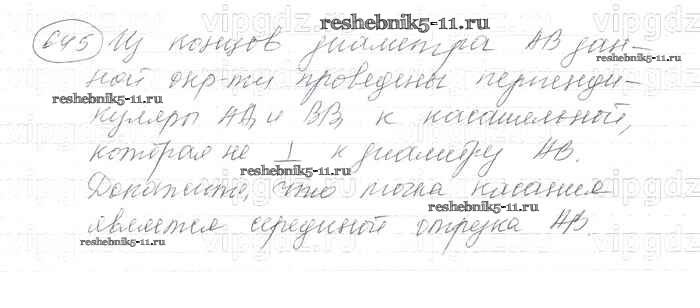 reshebnik5-11.ru
645 Из концов диаметра АВ дан-
reshebnik5-11.ru
ной окр-ти проведены перпенди-
reshebnik5-11.ru
куляры АА₁ и ВВ₁ к касательной,
которая не ⊥ к диаметру АВ.
reshebnik5-11.ru
Докажите, что точка касания
reshebnik5-11.ru
является серединой отрезка А₁В₁.
reshebnik5-11.ru